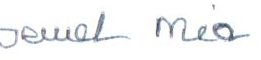 Jewel Mia